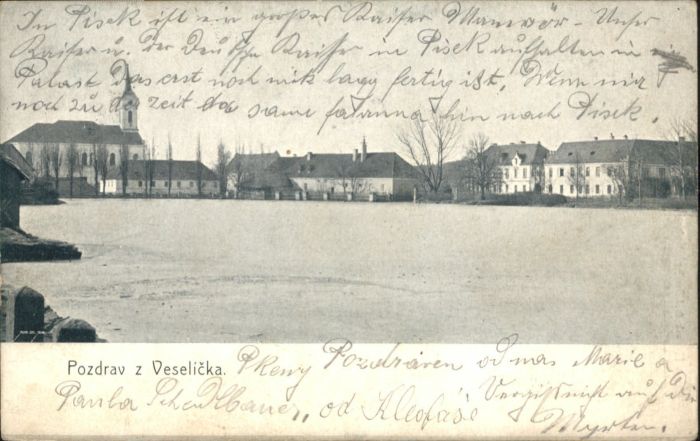 In Pisek ist ein großes Kaiser Manwör - Unser
Kaiser u. der Deutsche Kaiser in Pisek aufhalten in
Palast das erst noch nik lang fertig ist. Wenn wir
noch zu der zeit da same fahren hin nach Pisek.
Pozdrav z Veselíčka. Pkený Pozdráven od nás Marie a
Paula Schedlbauer, od Kleofáše Vergißnicht auf die
Myrten.